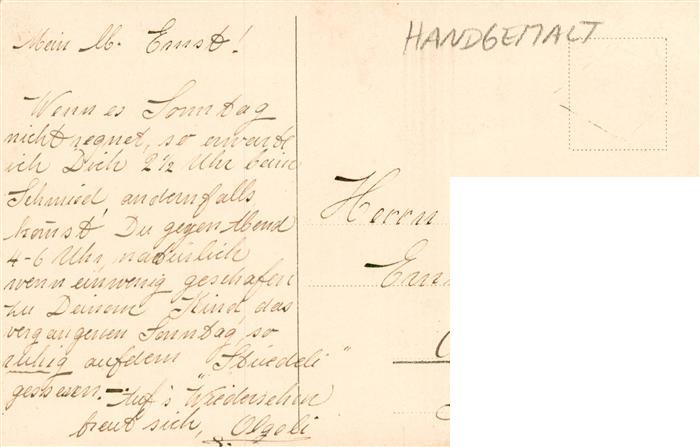 Mein lb. Ernst!
Wenn es Sonntag
nicht regnet, so erwarte
ich Dich 2 1/2 Uhr beim
Schmied, andernfalls
kom̄st Du gegen Abend
4-6 Uhr, natürlich
wenn einwenig geschafen
zu Deinem Kind, das
vergangenen Sonntag, so
ruhig aufdem "Stüedeli"
gesessen. - Auf's "Wiedersehen
freut sich, Olgeli
HANDGEMALT
Herrn